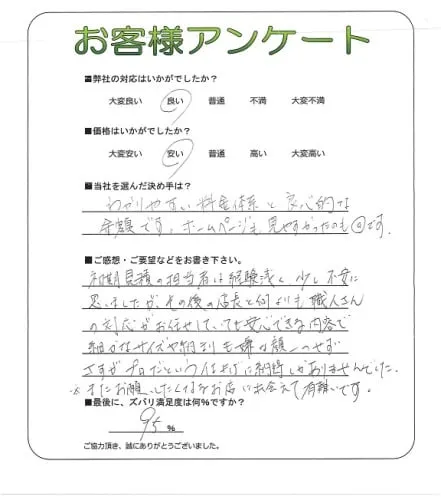 お客様アンケート
■弊社の対応はいかがでしたか?
大変良い 良い 普通 不満 大変不満
■価格はいかがでしたか?
大変安い 安い 普通 高い 大変高い
■当社を選んだ決め手は?
わかりやすい料金体系と良心的な
金額です。ホームページも見やすかったのも○です。
■ご感想・ご要望などをお書き下さい。
初期見積の担当者は経験浅く少し不安に
思いましたが、その後の店長と何よりも職人さん
の対応がお任せしていても安心できる内容で
細かなサイズや納まりも嫌な顔一つせず
さすがプロだという仕上げに納得しかありませんでした。
※またお願いしたくなるお店に出会えて有難いです。
■最後に、ズバリ満足度は何%ですか?
95 %
ご協力頂き、誠にありがとうございました。